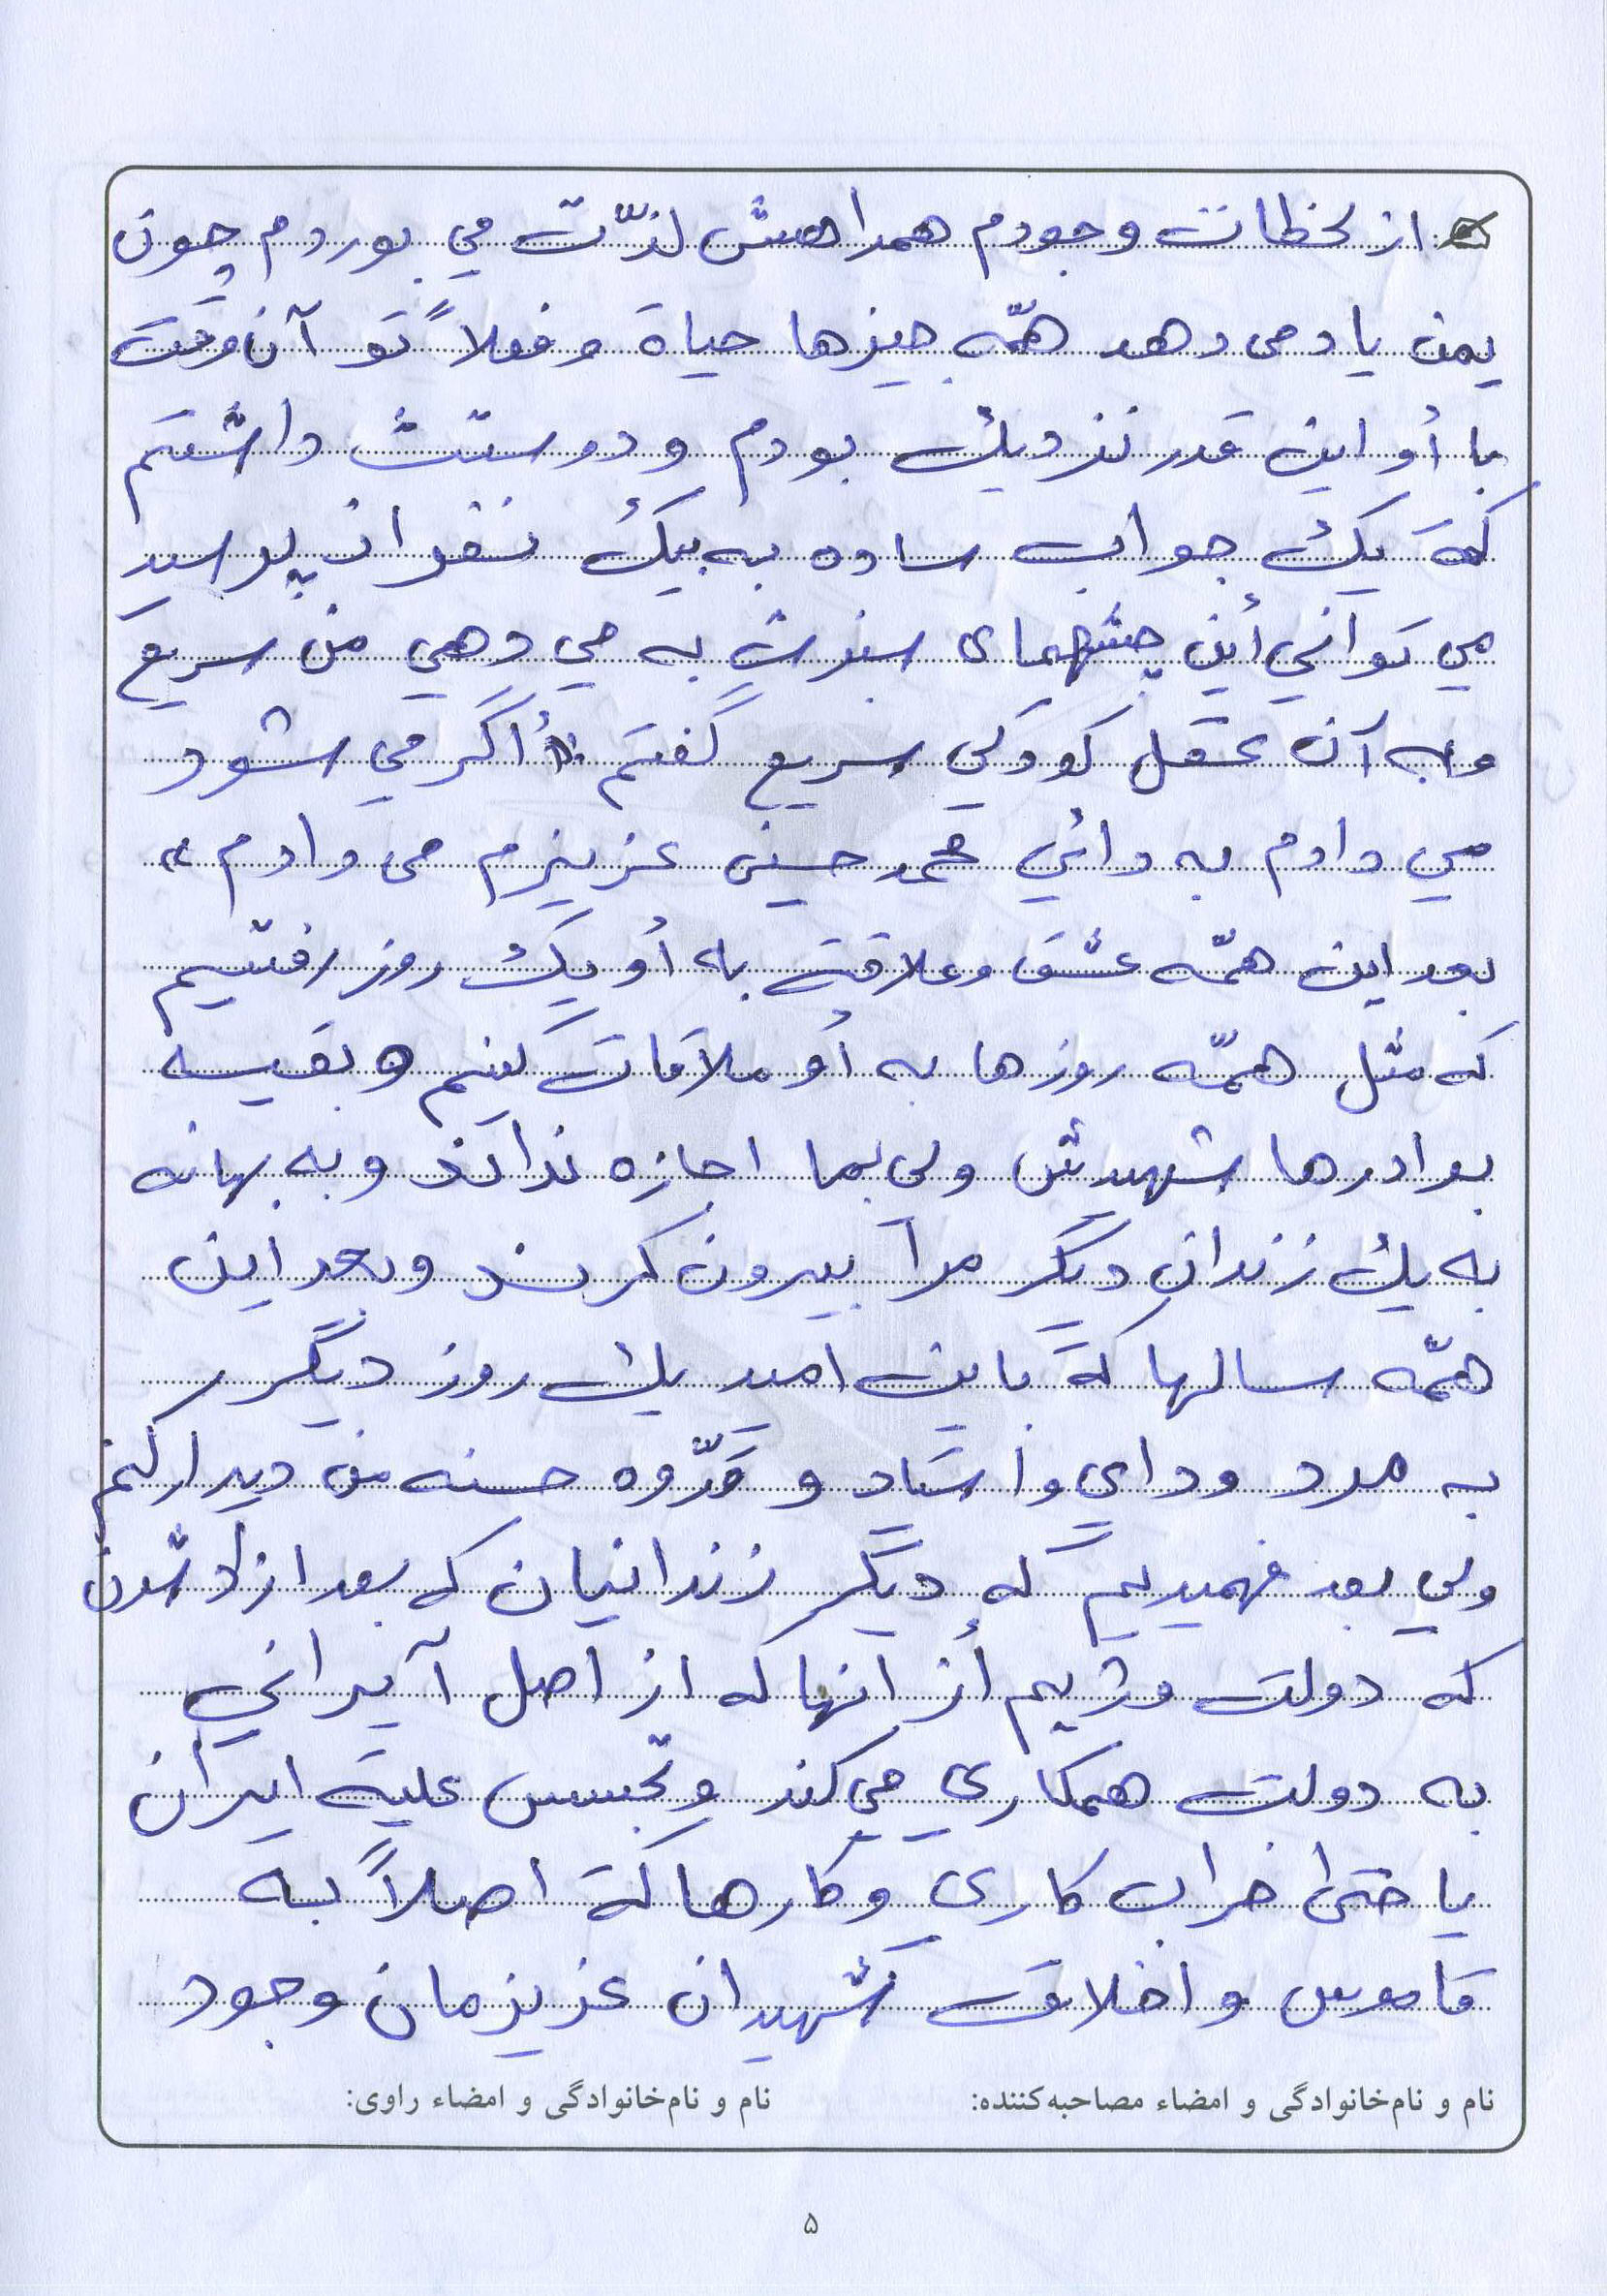 از لحظات وجودم همراهش لذّت مي بوردم چون
بمن ياد می دهد همّه چيزها حياة و فعلاً تو آن وقت
با أو اين قدر نزديك بودم و دوستش داشتم
كه يك جواب ساده به بيك نفر ان پرسيد
مي تواني أين چشهماى سبزت به مي دهي من سريع
وبه آن عقل كودكي سريع گفتم «اگر مي شود
مي دادم به دائي محمد حسين عزيزم می دادم»
بعد اين همّه عشق وعلاقت به أو يك روز رفتيم
كه مثل همّه روزها به أو ملاقات كنيم و بقيه
برادرها شهيدش ولی بما اجازه ندادند و به بهانه
به يك زندان ديگر مرا بيرون كردند وبعد اين
همّه سالها كه باين اميد يك روز ديگر
به مرد وداي واستاد و قدّوه حسنه من ديدار كنم
ولي بعد فهميديم كه ديگر زندانيان كه بعد ازاد شدن
كه دولت ورژيم أز انها كه از اصل آيراني
به دولت همكاري مي كند وتجسس عليه ايران
يا حتى خراب كاري وكارها كه اصلاً به
قاموس و اخلاق شهيدان عزيزمان وجود
نام و نام‌خانوادگی و امضاء مصاحبه‌کننده: نام و نام‌خانوادگی و امضاء راوی:
۵